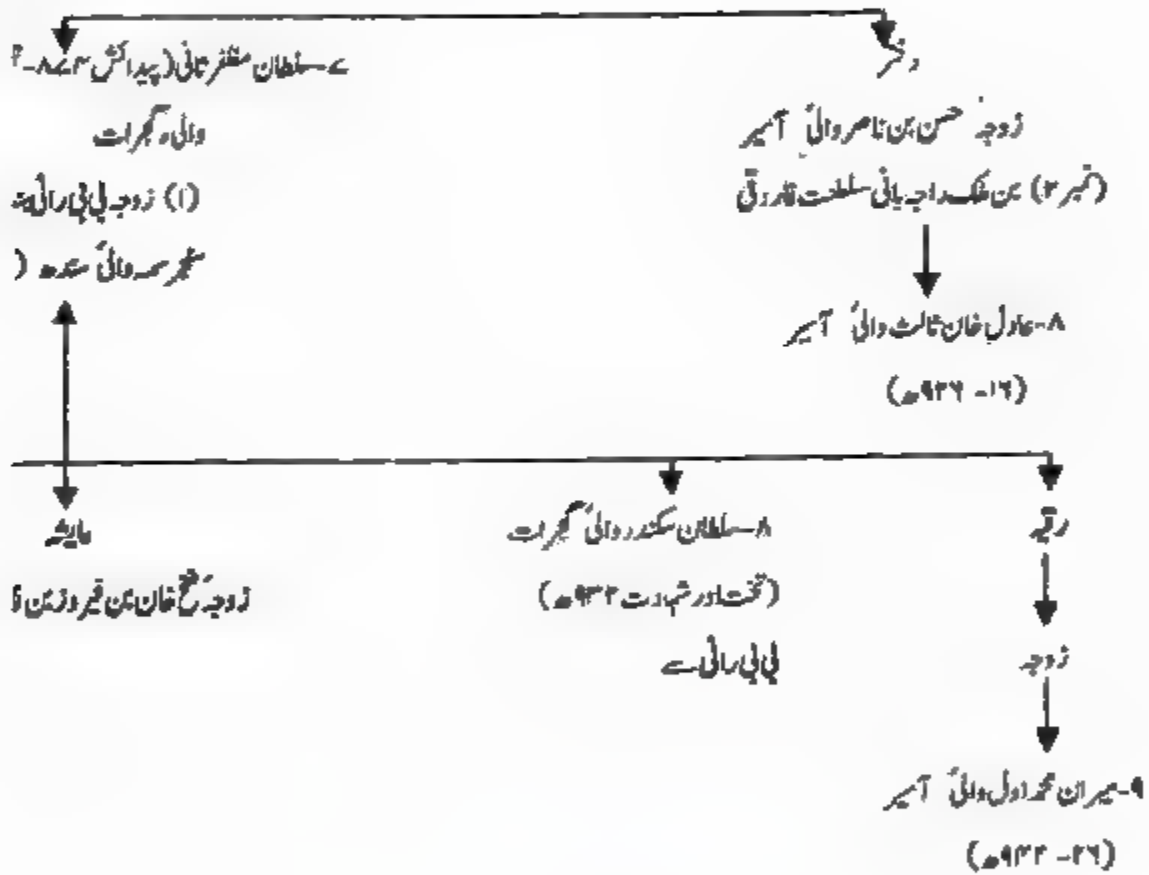 دختر
زوجہ حسن بن ناصر والیٔ آسیر
(نمبر ۲) بن ملک راجہ بانی سلطنت فاروقی
۸-عادل خان ثالث والیٔ آسیر
(۱۶-۹۲۶ھ)
۷-سلطان مظفر ثانی (پیدائش ۸۷۴-
والیٔ گجرات
(۱) زوجہ بی بی رانی
سنجر سمہ والیٔ سندھ (
رقیہ
زوجہ
۹-میران محمد اول والیٔ آسیر
(۲۶-۹۴۴ھ)
۸-سلطان سکندر والیٔ گجرات
(تخت اور شہادت ۹۳۲ھ)
بی بی رانی سے
عایشہ
زوجہ فتح خان بن فیروز بن